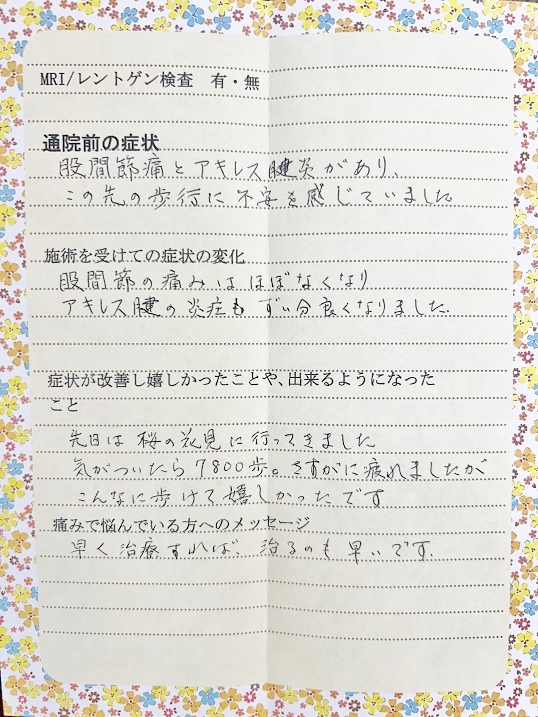 MRI/レントゲン検査　有・無
通院前の症状
股間節痛とアキレス腱炎があり、
この先の歩行に不安を感じていました
施術を受けての症状の変化
股間節の痛みはほぼなくなり
アキレス腱の炎症もずい分良くなりました.
症状が改善し嬉しかったことや、出来るようになった
こと
先日は桜の花見に行ってきました
気がついたら7800歩。さすがに疲れましたが
こんなに歩けて嬉しかったです
痛みで悩んでいる方へのメッセージ
早く治療すれば、治るのも早いです.